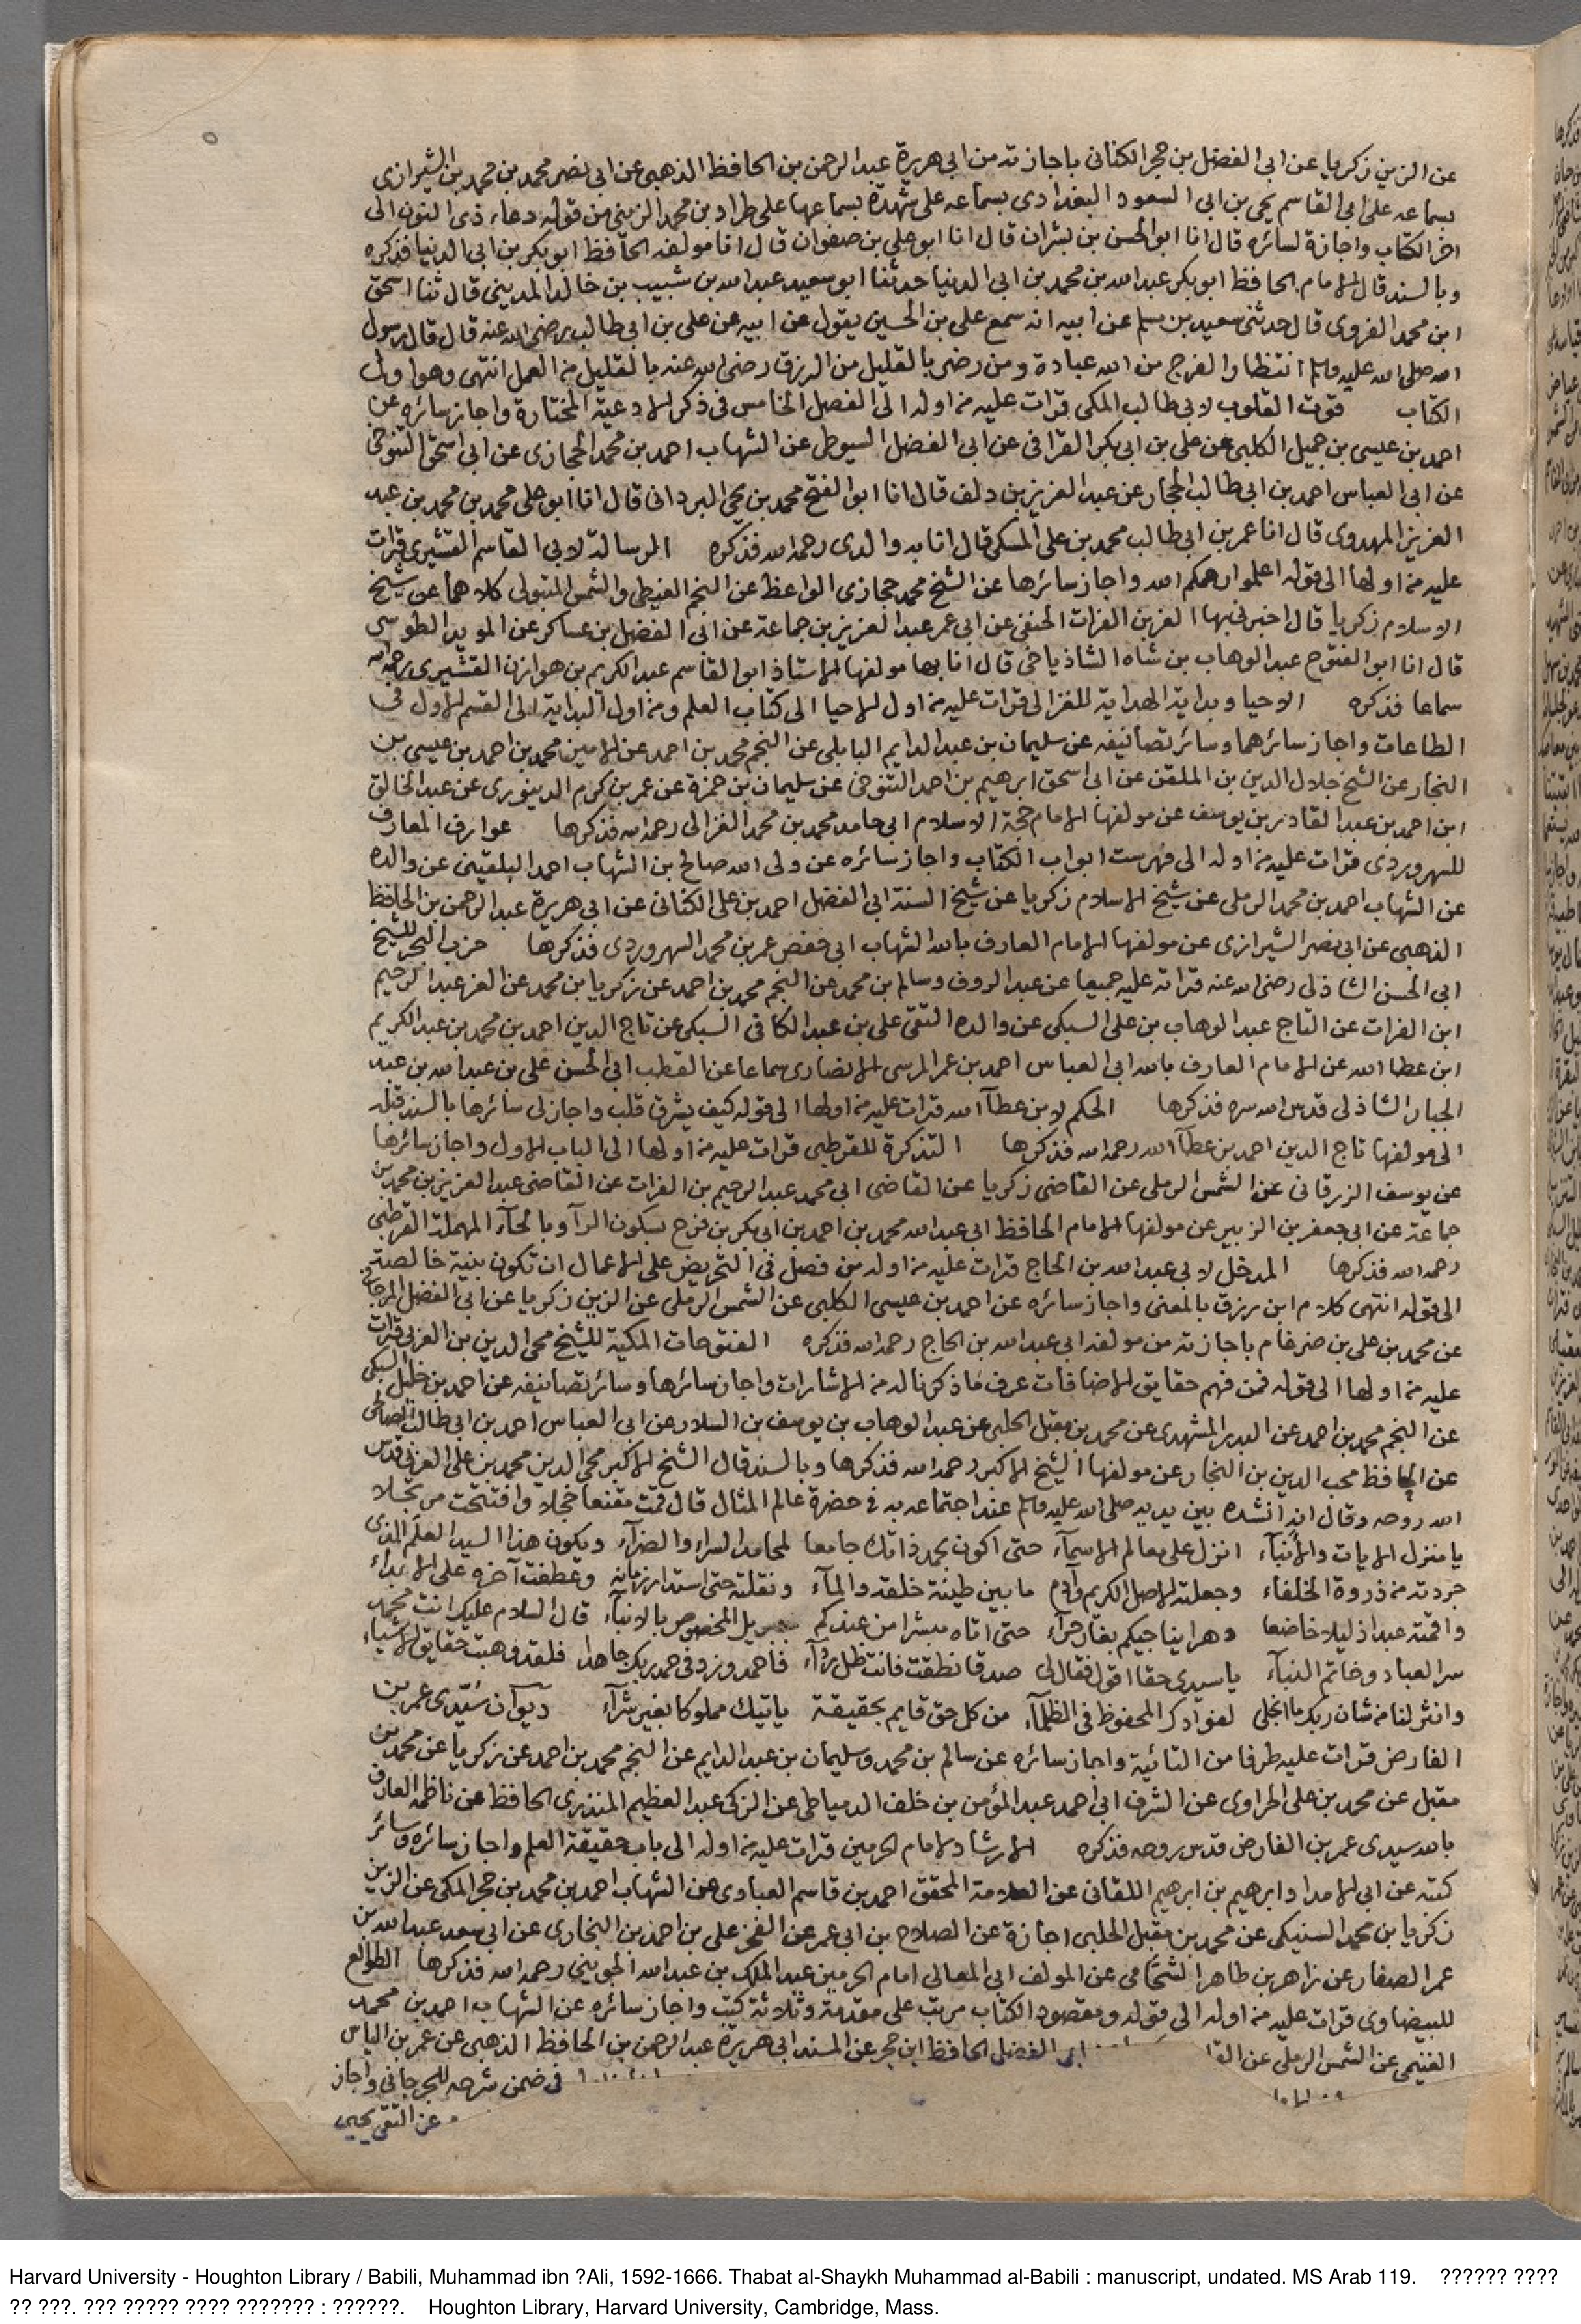 عن الزين زكريا عن ابى الفضل بن حجر الكنانى باجازته من ابى هريرة عبد الرحمن بن الحافظ الذهبى عن ابى نصر محمد بن محمد بن الشيرازى
بسماعه على ابى القاسم يحيى بن ابى السعود البغدادى بسماعه على شهدة بسماعها على طراد بن محمد الزينبى من قوله دعاء ذى النون الى
اخر الكتاب واجازة لسائره قال انا ابو الحسن بن بشران قال انا ابو على بن صفوان قال انا مولفه الحافظ ابو بكر بن ابى الدنيا فذكره
وبالسند قال الامام الحافظ ابو بكر عبد الله بن محمد بن ابى الدنيا حدثنا ابو سعيد عبد الله بن شبيب بن خالد المدينى قال ثنا اسحق
ابن محمد الفروى قال حدثنى سعيد بن مسلم عن ابيه انه سمع على بن الحسين يقول عن ابيه عن على بن ابى طالب رضى الله عنه قال قال رسول
الله صلى الله عليه وسلم انتظار الفرج من الله عبادة ومن رضى بالقليل من الرزق رضى الله عنه بالقليل من العمل انتهى وهو اول
الكتاب قوت القلوب لابى طالب المكى قرات عليه من اوله الى الفصل الخامس فى ذكر الادعية المختارة واجاز سائره عن
احمد بن عيسى بن جميل الكلبى عن على بن ابى بكر القرافى عن ابى الفضل السيوطى عن الشهاب احمد بن محمد الحجازى عن ابى اسحق التنوخى
عن ابى العباس احمد بن ابى طالب الحجار عن عبد العزيز بن دلف قال انا ابو الفتح محمد بن يحيى البردانى قال انا ابو على محمد بن محمد بن عبد
العزيز المهدوى قال انا عمر بن ابى طالب محمد بن على المكى قال انا به والدى رحمه الله فذكره الرسالة لابى القاسم القشيرى قرات
عليه من اولها الى قوله اعلموا رحمكم الله واجاز سائرها عن الشيخ محمد حجازى الواعظ عن النجم الغيطى والشمس المتبولى كلاهما عن شيخ
الاسلام زكريا قال اخبرنى بها العز بن الفرات الحنفى عن ابى عمر عبد العزيز بن جماعة عن ابى الفضل بن عساكر عن المويد الطوسى
قال انا ابو الفتوح عبد الوهاب بن شاه الشاذياخى قال انا بها مولفها الاستاذ ابو القاسم عبد الكريم بن هوازن القشيرى رحمه الله
سماعا فذكره الاحيا وبداية الهداية للغزالى قرات عليه من اول الاحيا الى كتاب العلم ومن اول البداية الى القسم الاول فى
الطاعات واجاز سائرهما وسائر تصانيفه عن سليمان بن عبد الدايم البابلى عن النجم محمد بن احمد عن الامين محمد بن احمد بن عيسى بن
النجار عن الشيخ جلال الدين بن الملقن عن ابى اسحق ابرهيم بن احمد التنوخى عن سليمان بن حمزة عن عمر بن كرم الدينورى عن عبد الخالق
ابن احمد بن عبد القادر بن يوسف عن مولفها الامام حجة الاسلام ابى حامد محمد بن محمد الغزالى رحمه الله فذكرها عوارف المعارف
للسهروردى قرات عليه من اوله الى فهرست ابواب الكتاب واجاز سائره عن ولى الله صالح بن الشهاب احمد البلقينى عن والده
عن الشهاب احمد بن محمد الرملى عن شيخ الاسلام زكريا عن شيخ السنة ابى الفضل احمد بن على الكنانى عن ابى هريرة عبد الرحمن بن الحافظ
الذهبى عن ابى نصر الشيرازى عن مولفها الامام العارف بالله الشهاب ابى حفص عمر بن محمد السهروردى فذكرها حزب البحر للشيخ
ابى الحسن الشاذلى رضى الله عنه قراته عليه جميعا عن عبد الروف وسالم بن محمد عن النجم محمد بن احمد عن زكريا بن محمد عن العز عبد الرحيم
ابن الفرات عن التاج عبد الوهاب بن على السبكى عن والده التقى على بن عبد الكافى السبكى عن تاج الدين احمد بن محمد بن عبد الكريم
ابن عطا الله عن الامام العارف بالله ابى العباس احمد بن عمر المرسى الانصارى سماعا عن القطب ابى الحسن على بن عبد الله بن عبد
الجبار الشاذلى قدس الله سره فذكرها الحكم لابن عطآ الله قرات عليه من اولها الى قوله كيف يشرق قلب واجاز لى سائرها بالسند قبله
الى مولفها تاج الدين احمد بن عطآ الله رحمه الله فذكرها التذكرة للقرطبى قرات عليه من اولها الى الباب الاول واجاز سائرها
عن يوسف الزرقانى عن الشمس الرملى عن القاضى زكريا عن القاضى ابى محمد عبد الرحيم بن الفرات عن القاضى عبد العزيز بن محمد بن
جماعة عن ابى جعفر بن الزبير عن مولفها الامام الحافظ ابى عبد الله محمد بن احمد بن ابى بكر بن فرح بسكون الرآ وبالحآء المهملة القرطبى
رحمه الله فذكرها المدخل لابى عبد الله بن الحاج قرات عليه من اوله من فصل فى التحريض على الاعمال ان تكون بنية خالصة
الى قوله انتهى كلام ابن رزق بالمعنى واجاز سائره عن احمد بن عيسى الكلبى عن الشمس الرملى عن الزين زكريا عن ابى الفضل المرجانى
عن محمد بن على بن ضرغام باجازته من مولفه ابى عبد الله بن الحاج رحمه الله فذكره الفتوحات المكية للشيخ محى الدين بن العربى قرات
عليه من اولها الى قوله فمن فهم حقايق الاضافات عرف ما ذكرنا له من الاشارات واجاز سائرها وسائر تصانيفه عن احمد بن خليل السبكى
عن النجم محمد بن احمد عن البدر المشهدى عن محمد بن مقبل الحلبى عن عبد الوهاب بن يوسف بن السلار عن ابى العباس احمد بن ابى طالب الصالحى
عن الحافظ محب الدين بن النجار عن مولفها الشيخ الاكبر رحمه الله فذكرها وبالسند قال الشيخ الاكبر محى الدين محمد بن على العربى قدس
الله روحه وقال انه أنشده بين يديه صلى الله عليه وسلم عند اجتماعه به فى حضرة عالم المثال قال قمت مقنعا خجلا وافتتحت مرتجلا
يا منزل الايات والأنبآء انزل على معالم الاسمآء حتى اكون بحمد ذاتك جامعا لمحامد السراء والضرآء ويكون هذا السيد العلم الذى
جردته من ذروة الخلفاء وجعلته الاصل الكريم وآدم ما بين طينة خلقه والمآء ونقلته حتى استدار زمانه وعطفت آخره على الابداء
واقمته عبدا ذليلا خاضعا دهرا يناجيكم بغار حرآء حتى اتاه مبشرا من عندكم جبريل المخصوص بالانبآء قال السلام عليك انت محمد
سر العباد وخاتم النبآء يا سيدى حقا اقول فقال لى صدقا نطقت فانت ظل ردآء فاحمد وزد فى حمد ربك جاهدا فلقد وهبت حقايق الاشياء
وانثر لنا من شان ربك ما انجلى لفؤادك المحفوظ فى الظلمآء من كل حق قايم بحقيقة ياتيك مملوكا بغير شرآء ديوان سيدى عمر بن
الفارض قرات عليه طرفا من التائية واجاز سائره عن سالم بن محمد وسليمان بن عبد الدايم عن النجم محمد بن احمد عن زكريا عن محمد بن
مقبل عن محمد بن على الحراوى عن الشرف ابى احمد عبد المؤمن بن خلف الدمياطى عن الزكى عبد العظيم المنذرى الحافظ عن ناظمه العارف
بالله سيدى عمر بن الفارض قدس روحه فذكره الارشاد لامام الحرمين قرات عليه من اوله الى باب حقيقة العلم واجاز سائره وسائر
كتبه عن ابى الامداد ابرهيم بن ابرهيم اللقانى عن العلامة المحقق احمد بن قاسم العبادى عن الشهاب احمد بن محمد بن حجر المكى عن الزين
زكريا بن محمد السنيكى عن محمد بن مقبل الحلبى اجازة عن الصلاح بن ابى عمر عن الفخر على بن احمد بن البخارى عن ابى سعد عبد الله بن
عمر الصفار عن زاهر بن طاهر الشحامى عن المولف ابى المعالى امام الحرمين عبد الملك بن عبد الله الجوينى رحمه الله فذكرها الطوالع
للبيضاوى قرات عليه من اوله الى قوله ومقصود الكتاب مرتب على مقدمة وثلاثة كتب واجاز سائره عن الشهاب احمد بن محمد
الغنيمى عن الشمس الرملى عن ابى الفضل الحافظ ابن حجر عن المسند ابى هريرة عبد الرحمن بن الحافظ الذهبى عن عمر بن الياس
فى ضمن شرحه للجرجانى واجاز
عن التقى يحيى
Harvard University - Houghton Library / Babili, Muhammad ibn ?Ali, 1592-1666. Thabat al-Shaykh Muhammad al-Babili : manuscript, undated. MS Arab 119. ?????? ????
?? ???. ??? ????? ???? ??????? : ??????. Houghton Library, Harvard University, Cambridge, Mass.